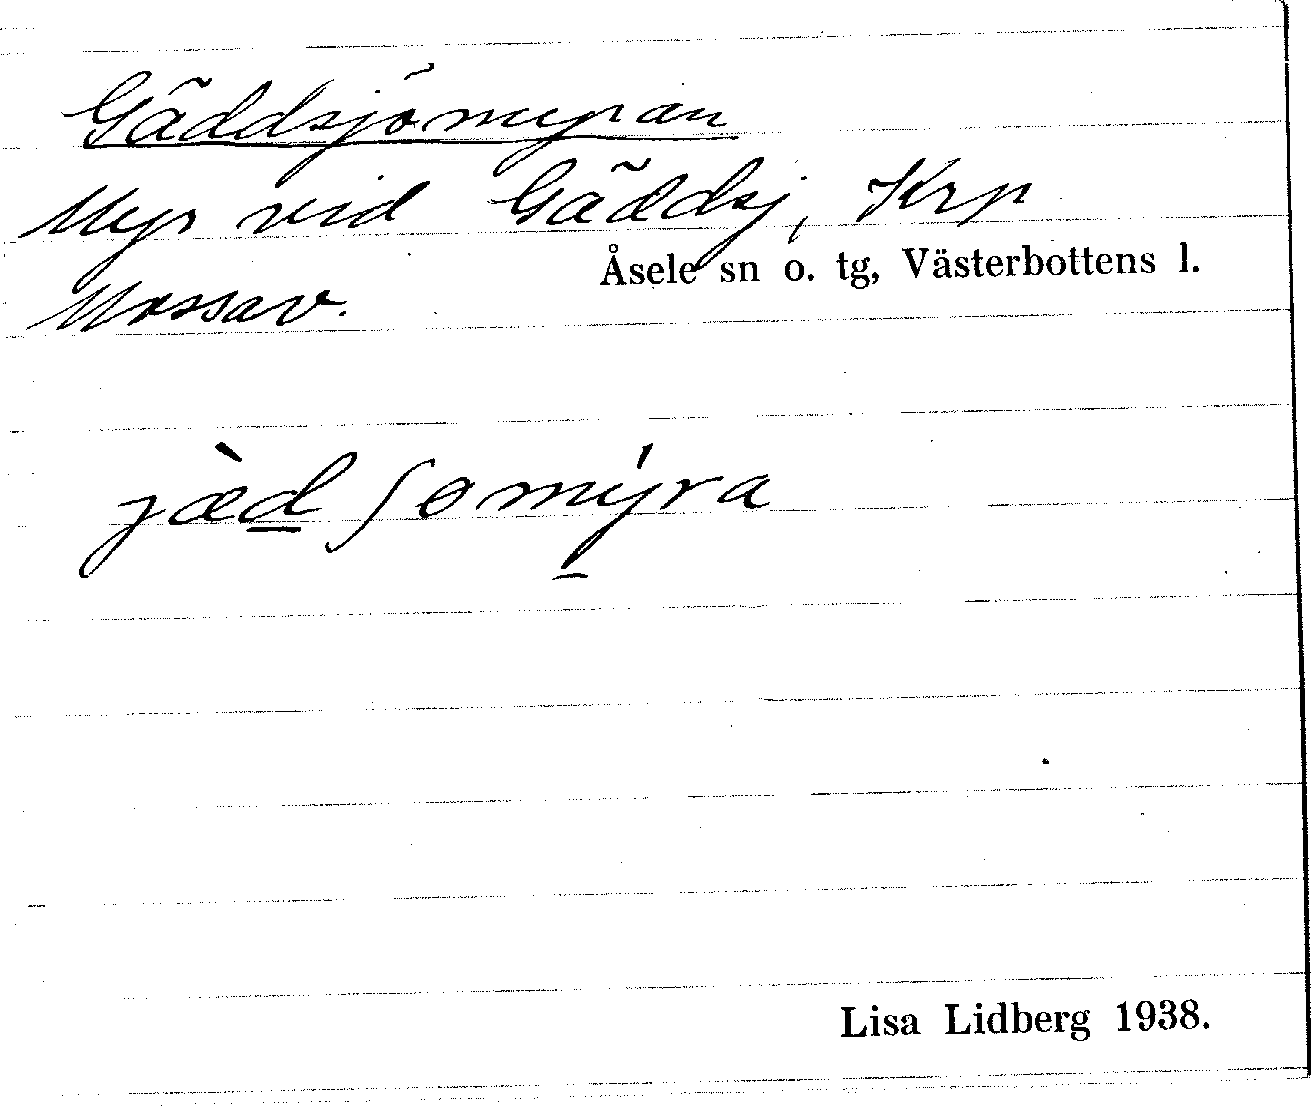 Gäddsjömyran
Myr vid Gäddsj, Krp
Åsele sn o. tg, Västerbottens l.
Mossav.
jæ̀d ʃomýra
Lisa Lidberg 1938.